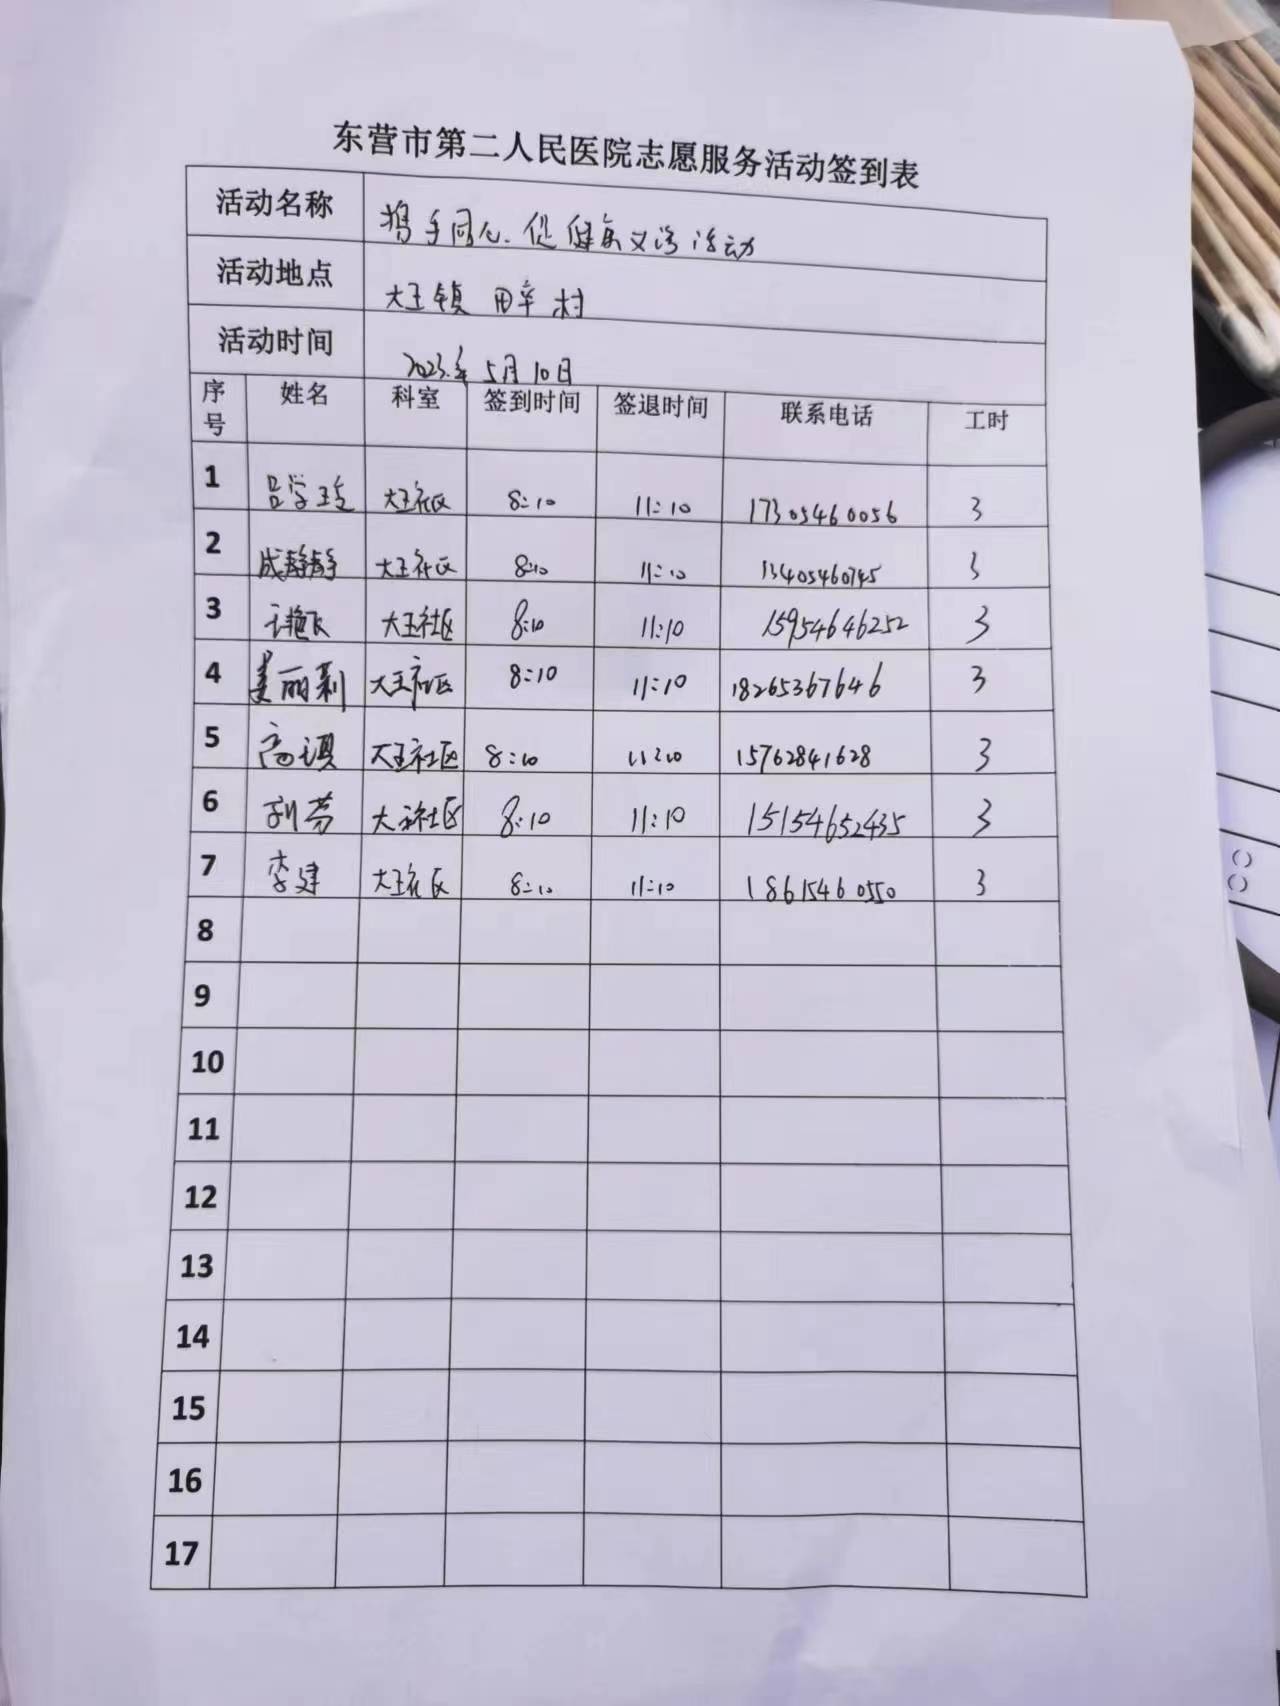 东营市第二人民医院志愿服务活动签到表
活动名称 携手同心、促健康义诊活动
活动地点 大王镇 田辛村
活动时间 2023年5月10日
序号 姓名 科室 签到时间 签退时间 联系电话 工时
1 吕学玲 大王社区 8:10 11:10 17305460056 3
2 成静静 大王社区 8:10 11:10 13405460745 3
3 大王社区 8:10 11:10 15954646252 3
4 姜丽利 大王社区 8:10 11:10 18265367646 3
5 高琪 大王社区 8:10 11:10 15762841628 3
6 刘芳 大王社区 8:10 11:10 15154652435 3
7 李建 大王社区 8:10 11:10 18615460550 3
8
9
10
11
12
13
14
15
16
17